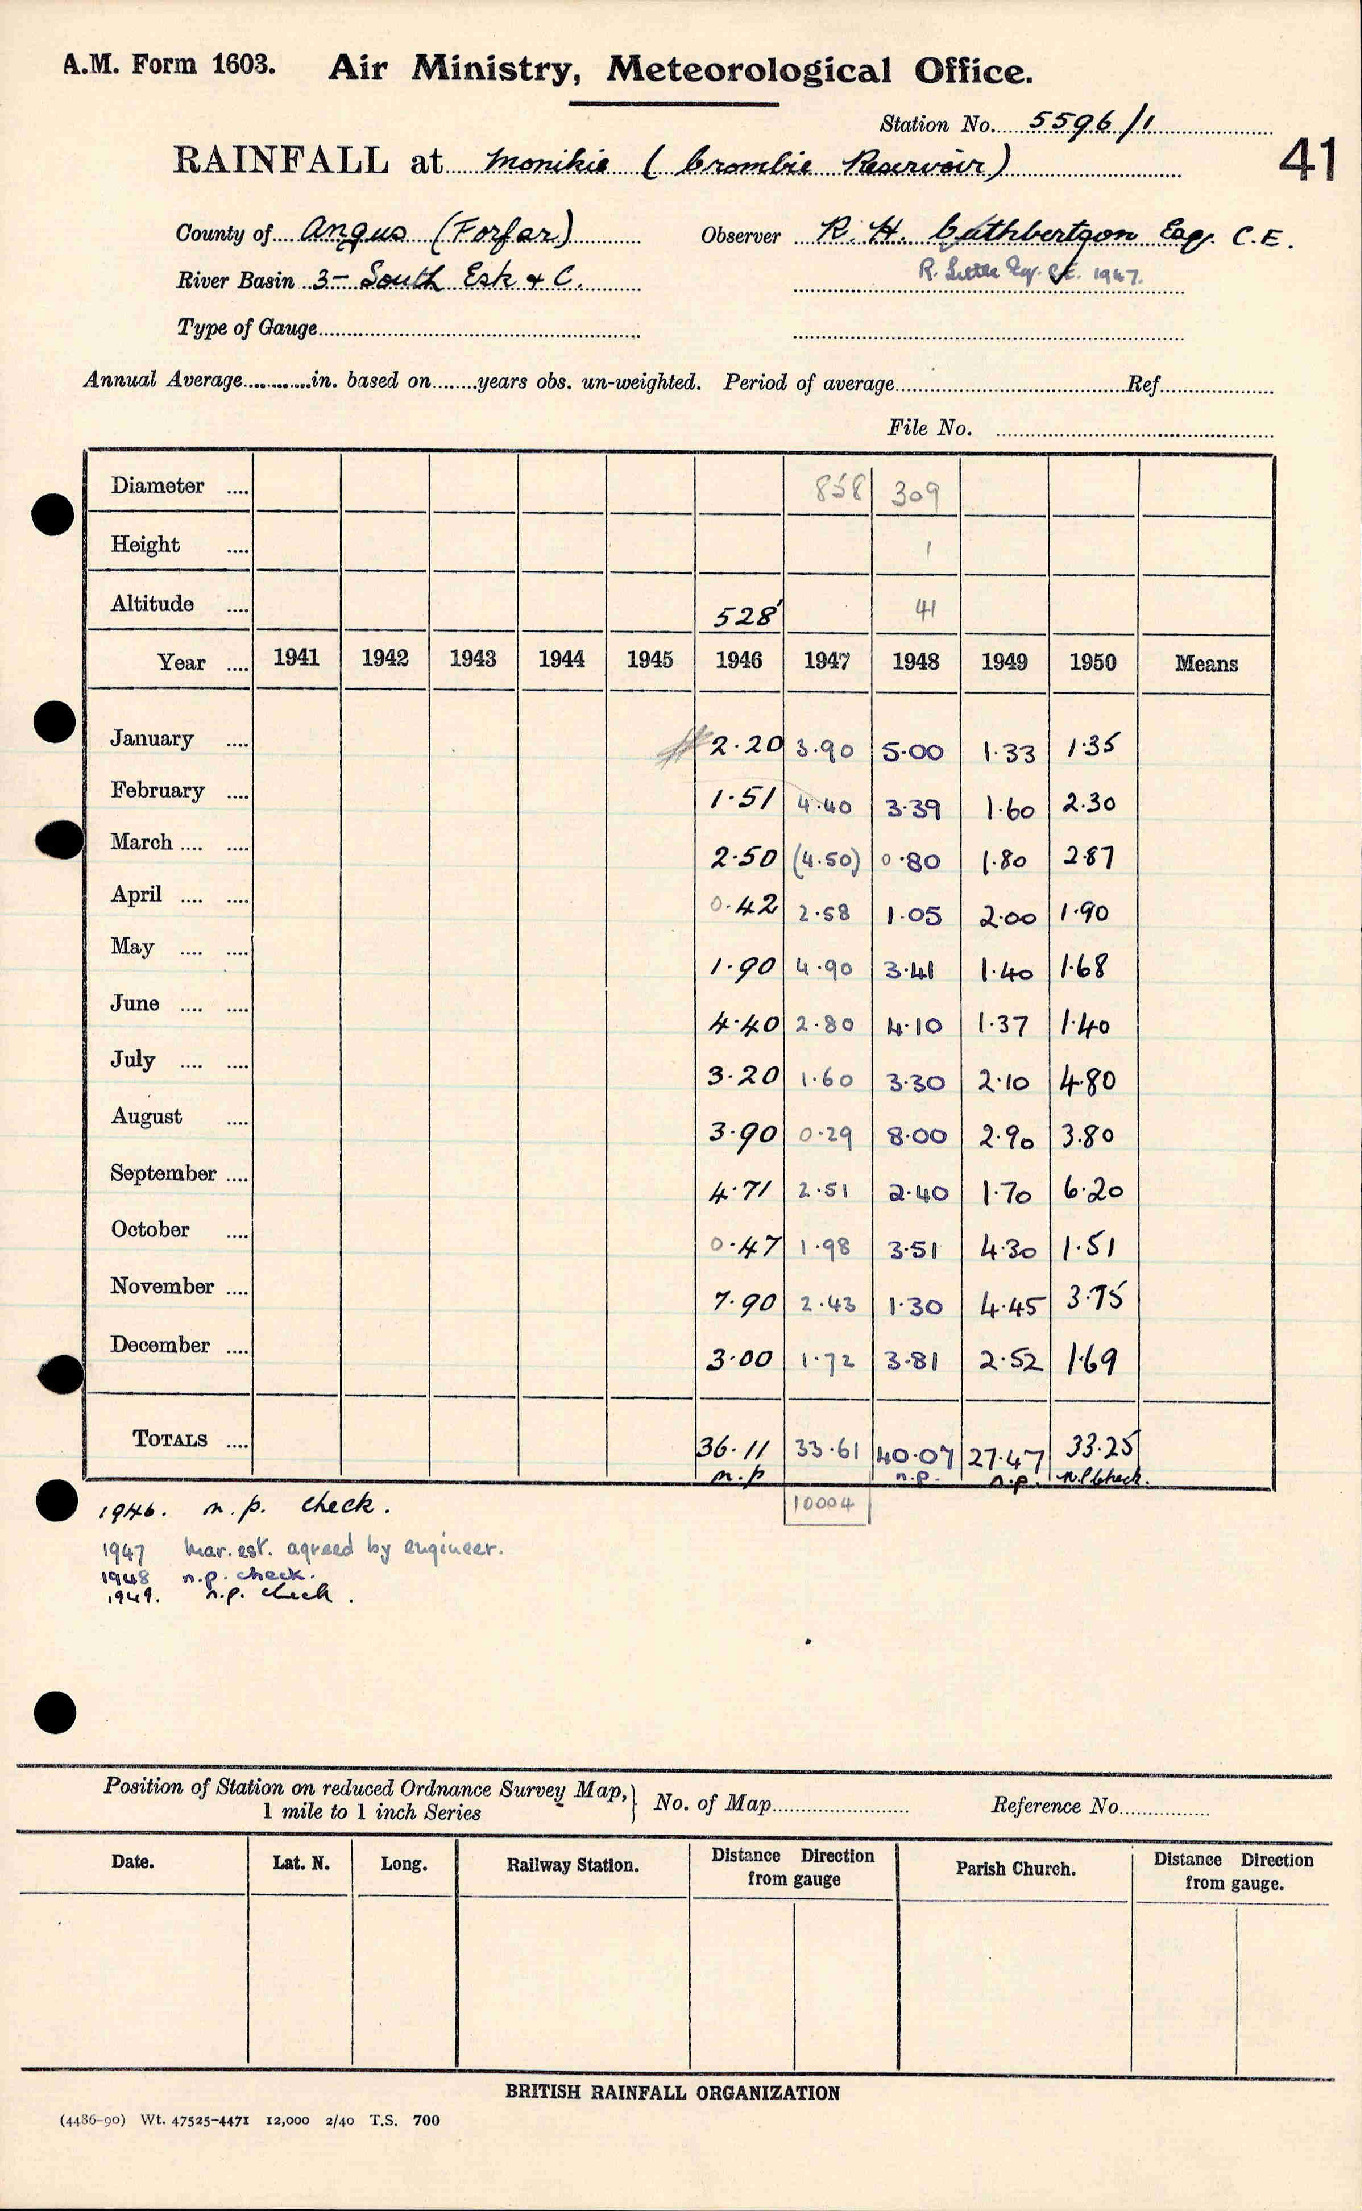 A.M. Form 1603. Air Ministry, Meteorological Office.
Station No. 5596/1
41
RAINFALL at Monikie (Crombie Reservoir)
County of Angus (Forfar) Observer R. H. Cuthbertson Esq. C.E.
River Basin 3- South Esk & C. R. Little Esq. C.E. 1947.
Type of Gauge
Annual Average in. based on years obs. un-weighted. Period of average Ref.
File No.
Diameter .... 858 309
Height .... 1
Altitude .... 528' 41
Year .... 1941 1942 1943 1944 1945 1946 1947 1948 1949 1950 Means
January .... 2.20 3.90 5.00 1.33 1.35
February .... 1.51 4.40 3.39 1.60 2.30
March .... .... 2.50 (4.50) 0.80 1.80 2.87
April .... .... 0.42 2.58 1.05 2.00 1.90
May .... .... 1.90 4.90 3.41 1.40 1.68
June .... .... 4.40 2.80 4.10 1.37 1.40
July .... .... 3.20 1.60 3.30 2.10 4.80
August .... 3.90 0.29 8.00 2.90 3.80
September .... 4.71 2.51 2.40 1.70 6.20
October .... 0.47 1.98 3.51 4.30 1.51
November .... 7.90 2.43 1.30 4.45 3.75
December .... 3.00 1.72 3.81 2.52 1.69
TOTALS .... 36.11 33.61 40.07 27.47 33.25
n.p n.p. n.p. n.p check.
10004
1946. n.p. check.
1947 Mar. est. agreed by engineer.
1948 n.p. check.
1949. n.p. check.
Position of Station on reduced Ordnance Survey Map, } No. of Map Reference No.
1 mile to 1 inch Series
Date. Lat. N. Long. Railway Station. Distance Direction from gauge Parish Church. Distance Direction from gauge.
BRITISH RAINFALL ORGANIZATION
(4486-90) Wt. 47525-4471 12,000 2/40 T.S. 700